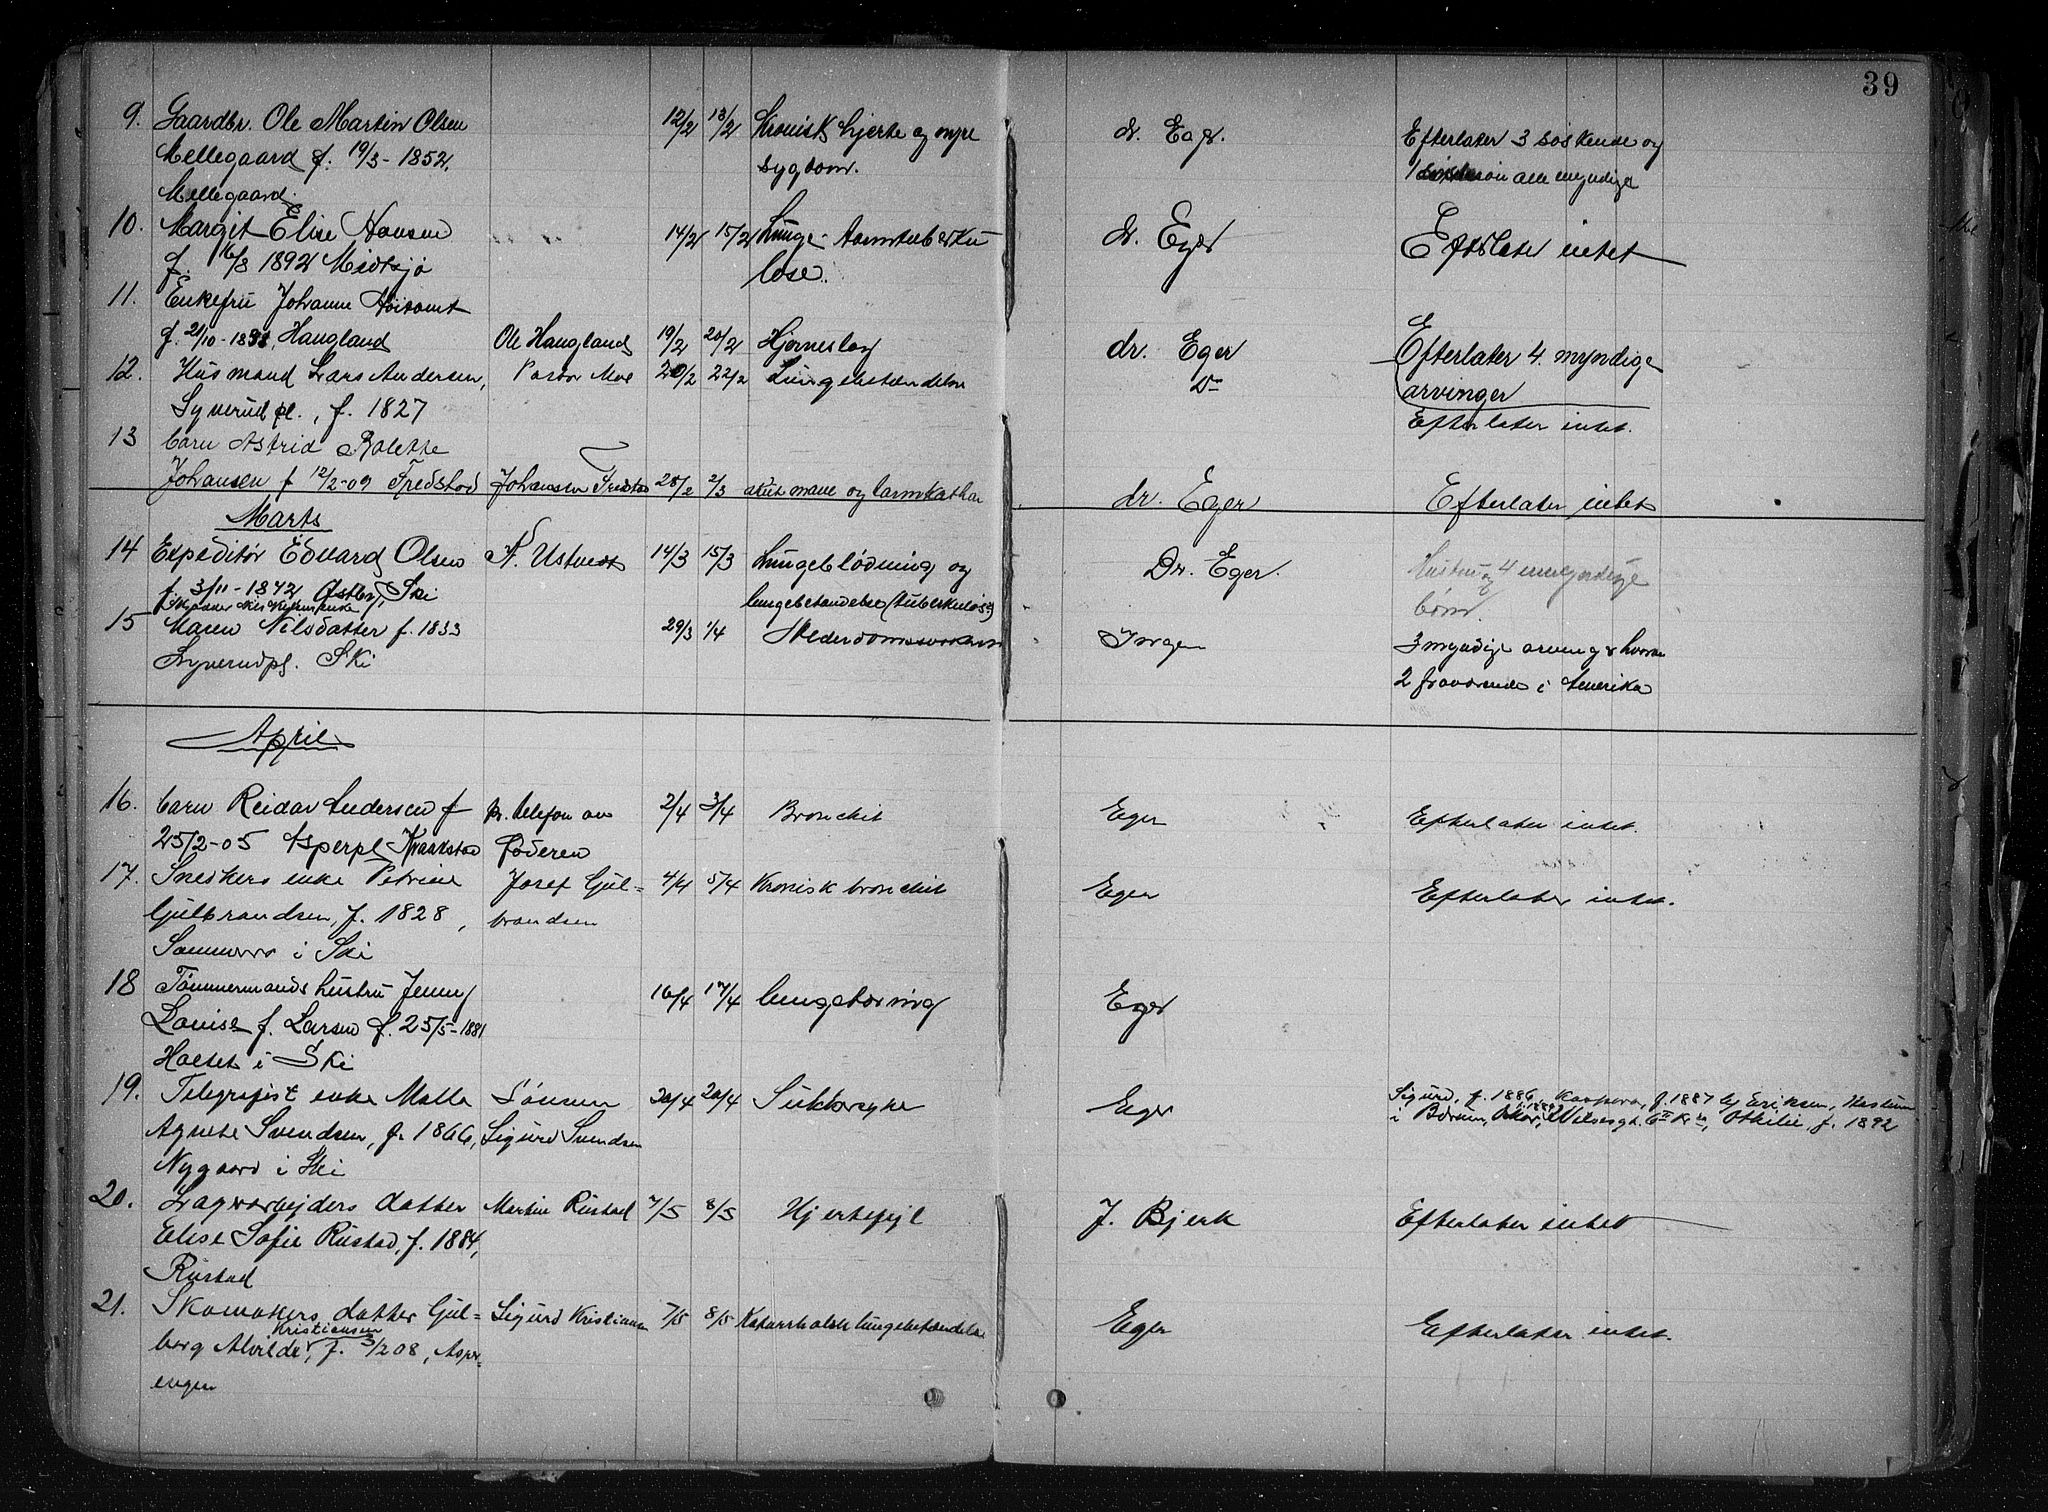 39
9. Gaardbr. Ole Martin Olsen 12/2 13/2 Kronisk hjerte og nyre dr. Eger. Efterlater 3 søskende og
Mellegaard f. 19/3-1852, sygdom. 1 alle myndige
Mellegaard.
10. Margit Elise Hansen 14/2 15/2 Lunge- tarmtuberku dr. Eger Efterlater intet
f. 16/8 1892 Midtsjø lose.
11. Enkefru Johanne
f. 21/10-1838, Haugland Ole Haugland 19/2 20/2 Hjerneslag dr. Eger Efterlater 4 myndige
12. Husmand Lars Andersen, Pastor Moe 20/2 22/2 Lungebetændelse Do arvinger
Syverud pl., f. 1827 Efterlater intet.
13 barn Astrid Rolette
Johansen f 12/2-09 Fredstad Johansen Fredstad 28/2 2/3 akut mave og tarmkathar dr. Eger Efterlater intet
Marts
14 Expeditør Edvard Olsen N. Ustvedt 14/3 15/3 Lungeblødning og Dr. Eger. Hustru og 4 umyndige
f. 3/11-1872 Østby, Ski lungebetændelse (tuberkuløs) børn.
15 Maren Nilsdatter f. 1833 29/3 1/4 Alderdomssvækkelse Ingen 3 myndige arvinger hvorav
Syverudpl. Ski 2 fraværende i Amerika
April
16. barn Reidar Andersen f pr. telefon av 2/4 3/4 Bronchit Eger Efterlater intet.
25/2-05 Asperpl Kraakstad Foderen
17. Snedkers enke Petrine Josef Gul- 4/4 5/4 Kronisk bronchit Eger Efterlater intet.
Gulbrandsen, f. 1828, brandsen
Sommerro i Ski
18 Tømmermands hustru Jenny 16/4 17/4 lungetæring Eger
Louise f. Larsen f. 25/5-1881
Holtet i Ski
19. Telegrafist enke Malla Sønnen 20/4 20/4 Sukkersyke Eger Sigurd, f. 1886, Kaspara, f. 1887 g Eriksen, Hestum
Agnete Svendsen, f. 1866, Sigurd Svendsen i Bærum, Oskar, f. 1889, Othilie, f. 1892
Nygaard i Ski
20. Lagerarbejders datter Martin Rustad 7/5 8/5 Hjertefejl J. Bjerk Efterlater intet
Elise Sofie Rustad, f. 1884,
Rustad
21. Skomakers datter Gul- Sigurd Kristiansen 7/5 8/5 Katarrhalsk lungebetændelse Eger Efterlater intet.
Kristiansen
borg Alvilde, f. 3/2 08, Asper-
engen